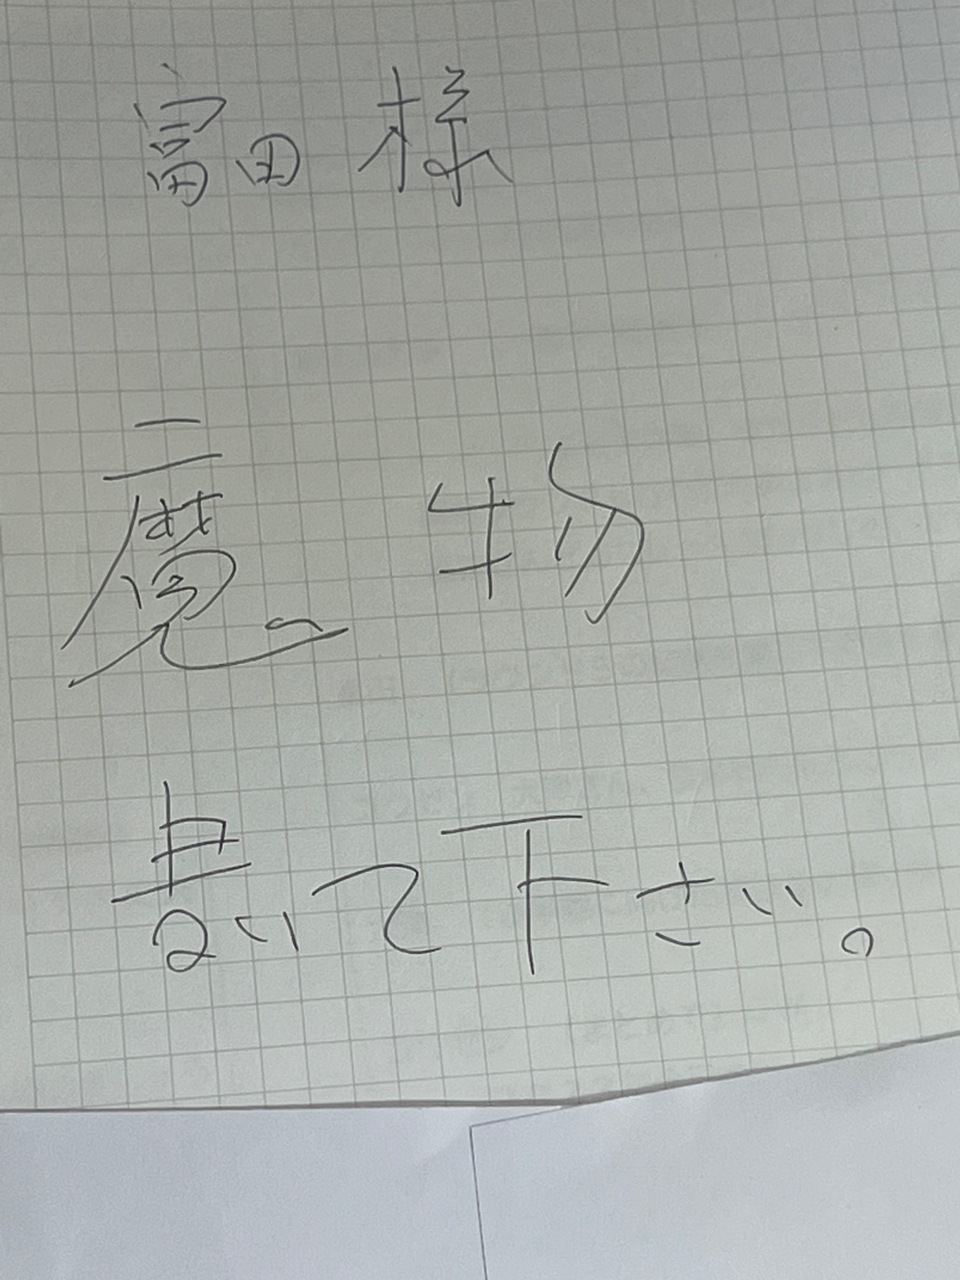 富田 様
魔 物
書いて下さい。